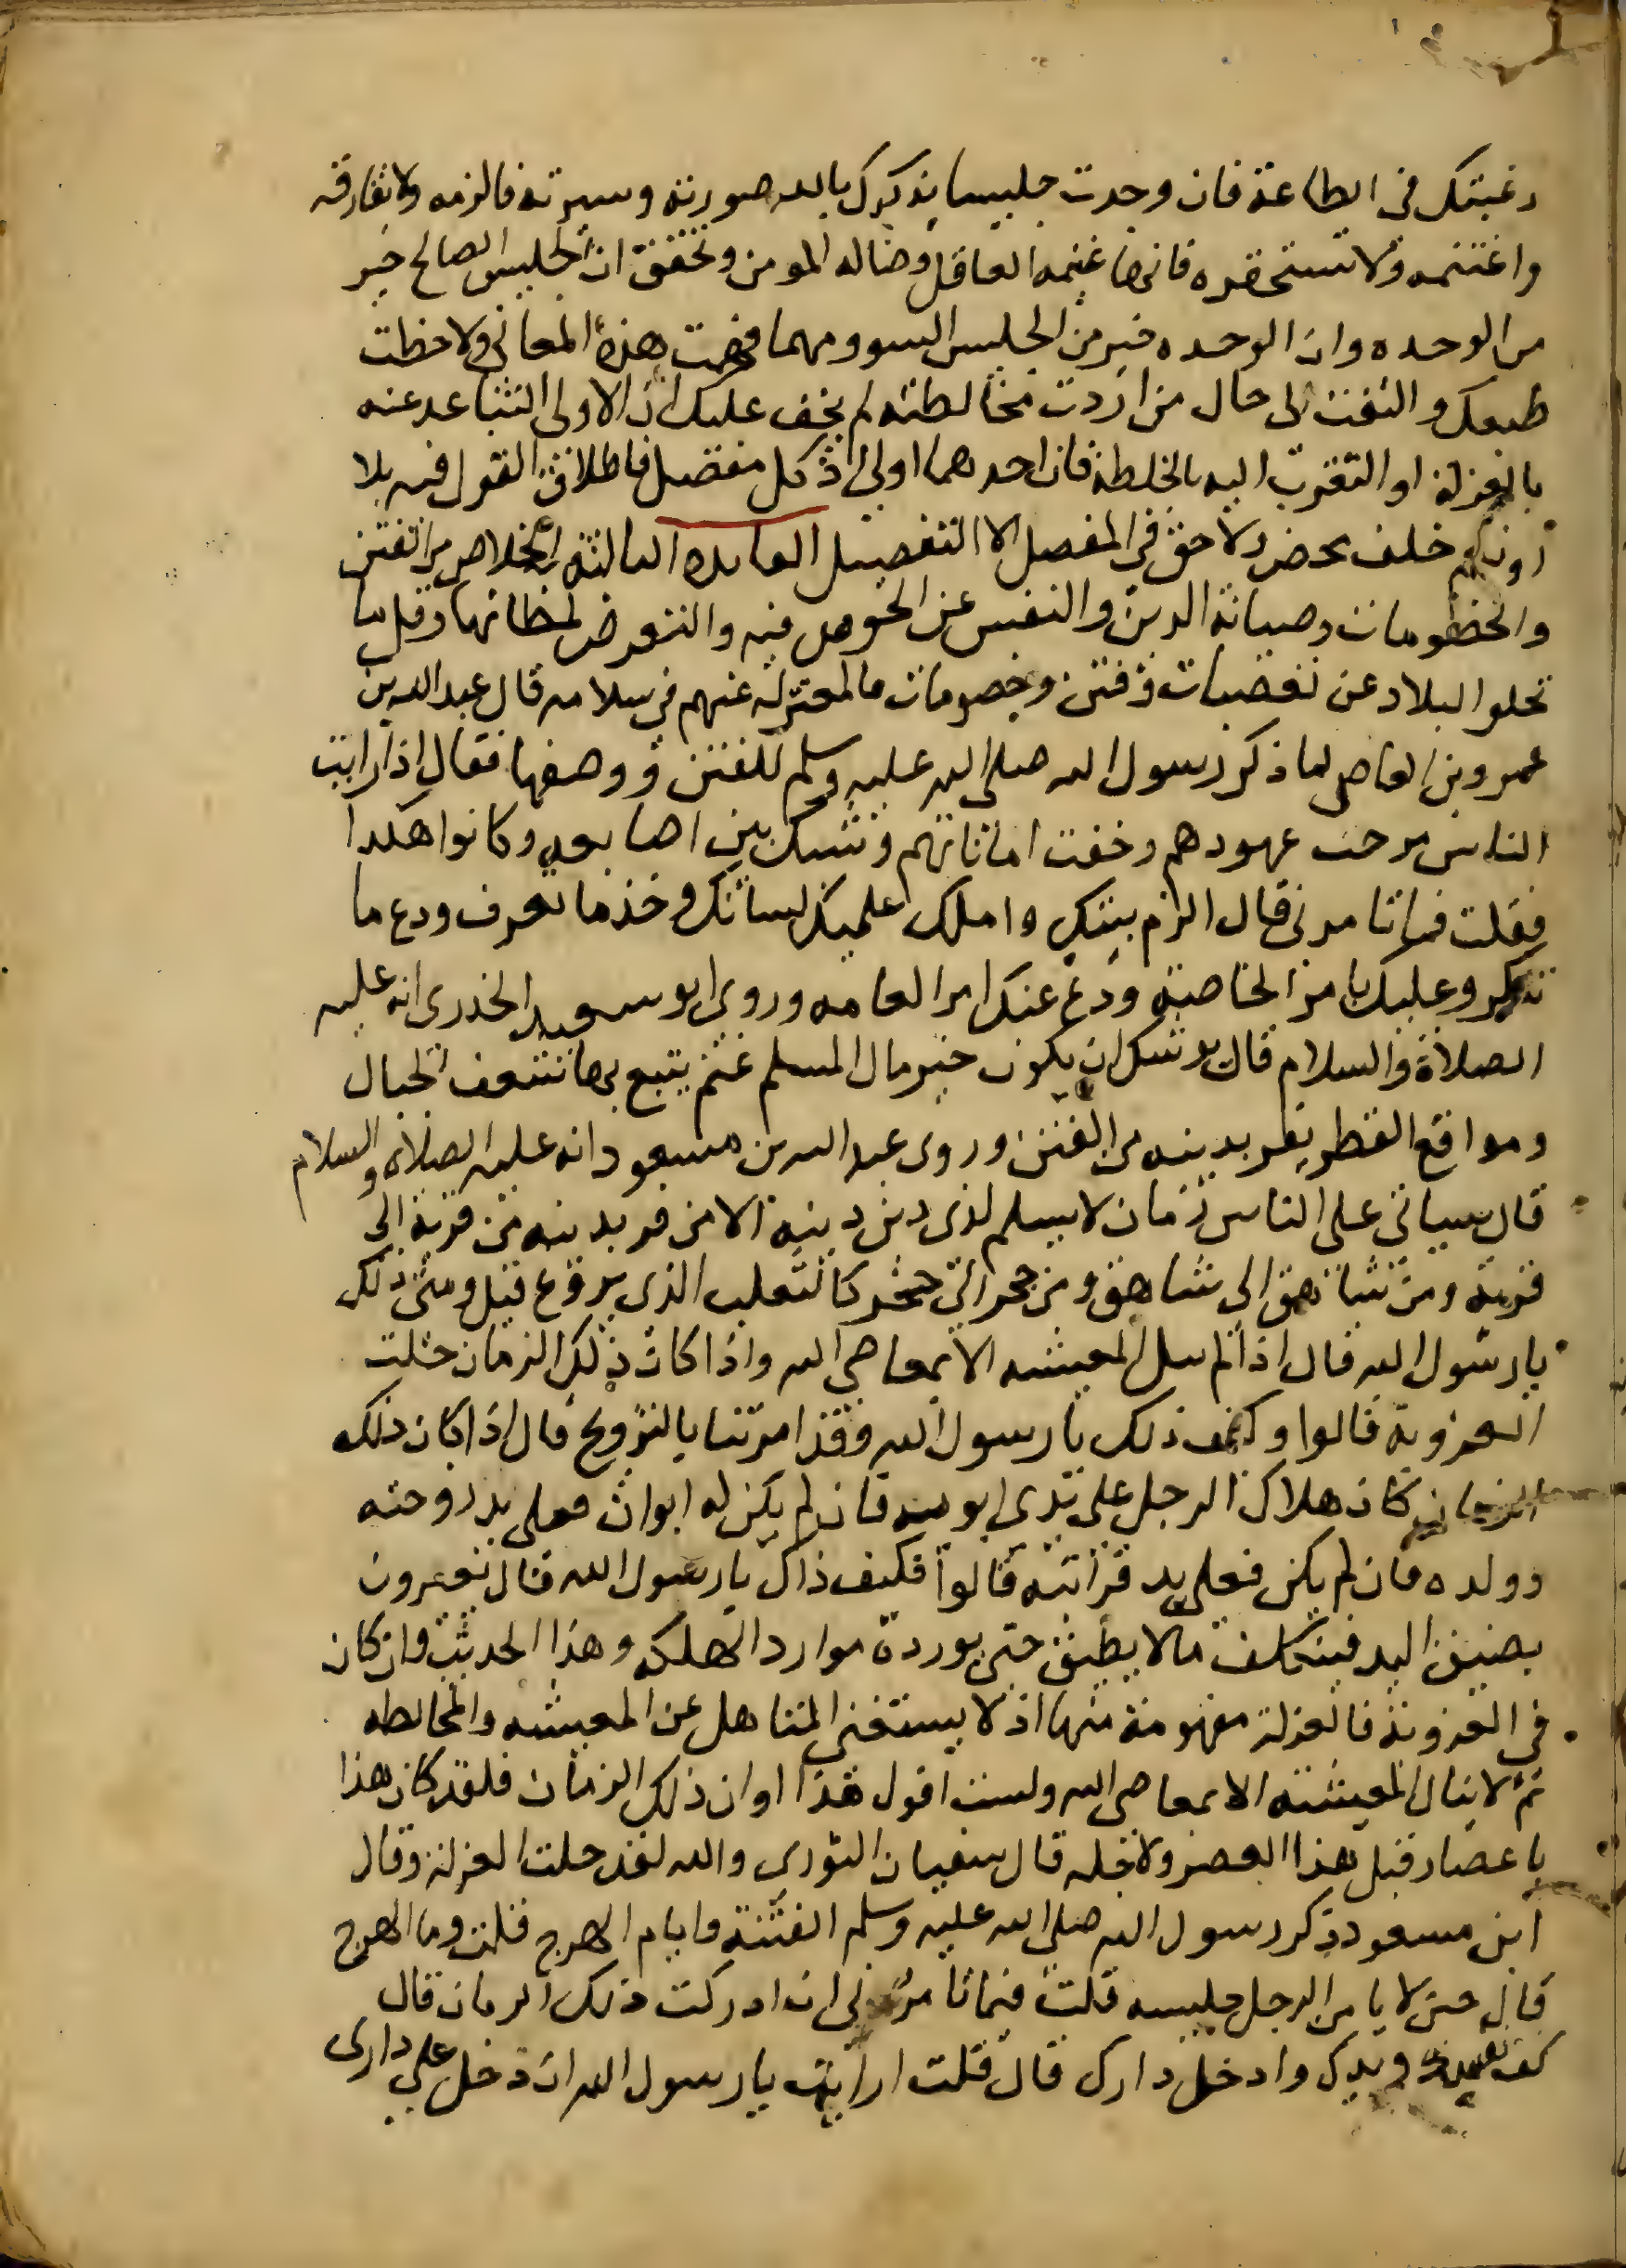 رغبتك فى الطاعة فان وجدت جليسا يذكرك بالله صورته وسيرته فالزمه ولا تفارقه
واغتنمه ولا تستحقره فانها غنيمه العاقل وضاله المومن وتحقق ان الجليس الصالح خير
من الوحده وان الوحده خير من الجليس السوو ومهما فهمت هذه المعانى ولاحظت
طبعك والتفت الى حال من اردت مخالطته لم يخف عليك ان الاولى التباعد عنه
بالعزلة او التقرب اليه بالخلطة فان احدهما اولى اذ كل مفصل فاطلاق القول فيه بلا
او نعم خلف محض ولا حق فى المفصل الا التفصيل الفايده الثالثة الخلاص من الفتن
والخصومات وصيانة الدين والنفس عن الخوض فيه والتعرض لمخطاتها وقل ما
تخلو البلاد عن تعصبات وفتن وخصومات فالمعتزل عنهم فى سلامه قال عبد الله بن
عمرو بن العاص لما ذكر رسول الله صلى الله عليه وسلم للفتن ووصفها فقال اذا رايت
الناس مرجت عهودهم وخفت اماناتهم وشبك بين اصابعه وكانوا هكذا
فقلت فما تامرنى قال الزم بيتك واملك عليك لسانك وخذ ما تعرف ودع ما
تنكر وعليك بامر الخاصة ودع عنك امر العامه وروى ابو سعيد الخدرى انه عليه
الصلاة والسلام قال يوشك ان يكون خير مال المسلم غنم يتبع بها شعف الجبال
ومواقع القطر يفر بدينه من الفتن وروى عبد الله بن مسعود انه عليه الصلاة والسلام
قال سياتى على الناس زمان لا يسلم لذى دين دينه الا من فر بدينه من قرية الى
قرية ومن شاهق الى شاهق ومن حجر الى حجر كالثعلب الذى يروغ قيل ومتى ذلك
يا رسول الله قال اذا لم تنل المعيشه الا بمعاصى الله واذا كان ذلك الزمان حلت
العزوبة قالوا وكيف ذلك يا رسول الله وقد امرتنا بالتزويج قال اذا كان ذلك
الزمان كان هلاك الرجل على يدى ابويه فان لم يكن له ابوان فعلى يد زوجته
وولده فان لم يكن فعلى يد قرابته قالوا فكيف ذاك يا رسول الله قال يعيرون
بضيق اليد فيتكلف ما لا يطيق حتى يورده موارد الهلكه وهذا الحديث وان كان
فى العزوبة فالعزلة مفهومة منها اذ لا يستغنى المتاهل عن المعيشه والمخالطه
ثم لا ينال المعيشة الا بمعاصى الله ولست اقول هذا اوان ذلك الزمان فلقد كان هذا
باعصار قبل هذا العصر ولاجله قال سفيان الثورى والله لقد حلت العزلة وقال
ابن مسعود ذكر رسول الله صلى الله عليه وسلم الفتنة وايام الهرج قلت وما الهرج
قال حين لا يامن الرجل جليسه قلت فما تامرنى ان ادركت ذلك الزمان قال
كف نفسك ويدك وادخل دارك قال قلت ارايت يا رسول الله ان دخل على دارى